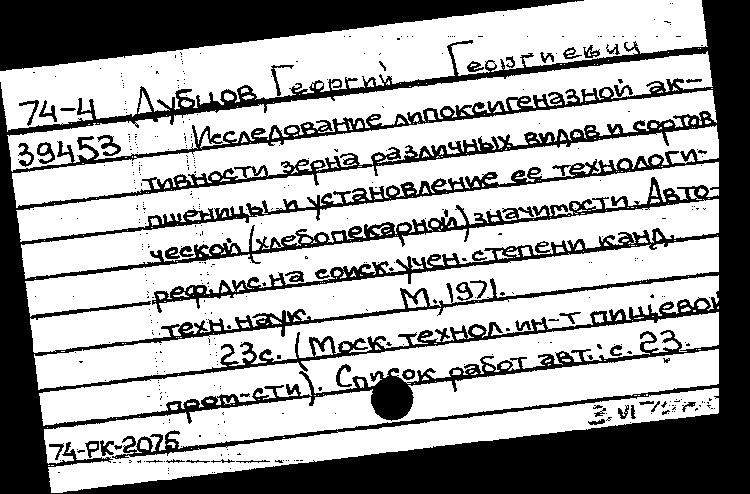 74-4 Дубцов, Георгий Георгиевич
39453 Исследование липоксигеназной ак-
тивности зерна различных видов и сортов
пшеницы и установление ее технологи-
ческой (хлебопекарной) значимости. Авто-
реф. дис. на соиск. учен. степени канд.
техн. наук. М., 1971.
23с. (Моск. технол. ин-т пищевой
пром-сти). Список работ авт.: с. 23.
74-РК-2075
3 VI